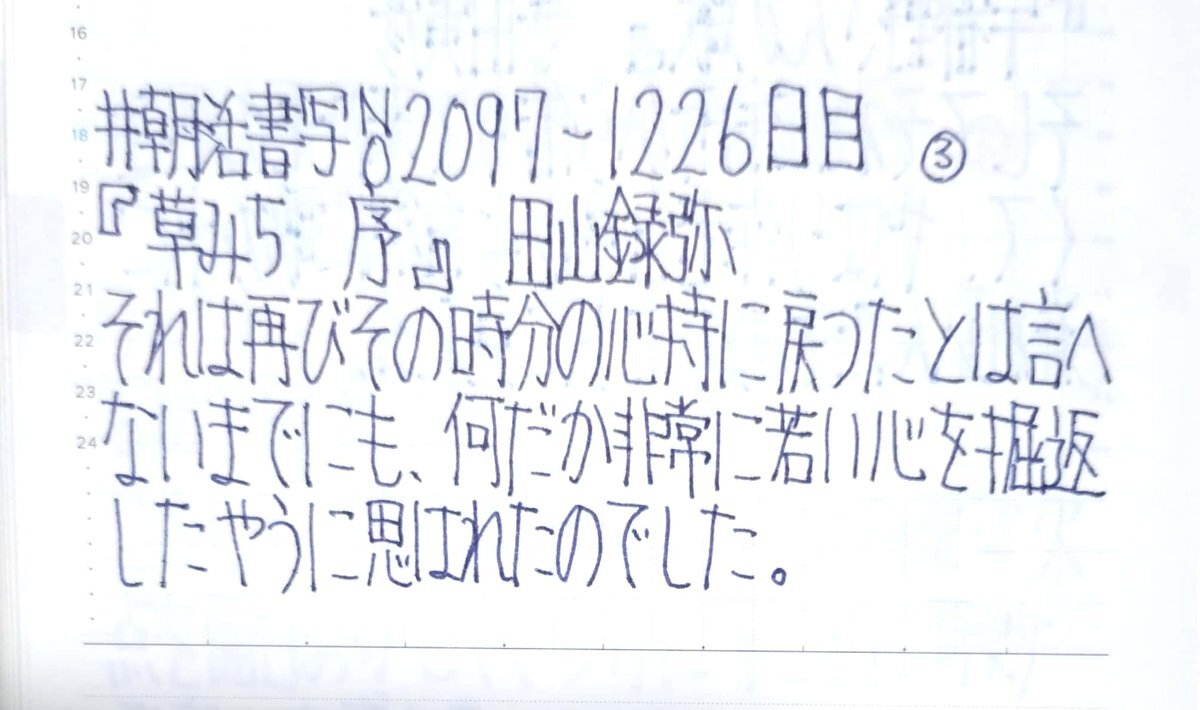 16
17
#朝活書写No2097-1226日目 ③
18
19
『草みち 序』 田山録弥
20
21
それは再びその時分の心持に戻ったとは言へ
22
23
ないまでにも、何だか非常に若い心を掘返
24
したやうに思はれたのでした。